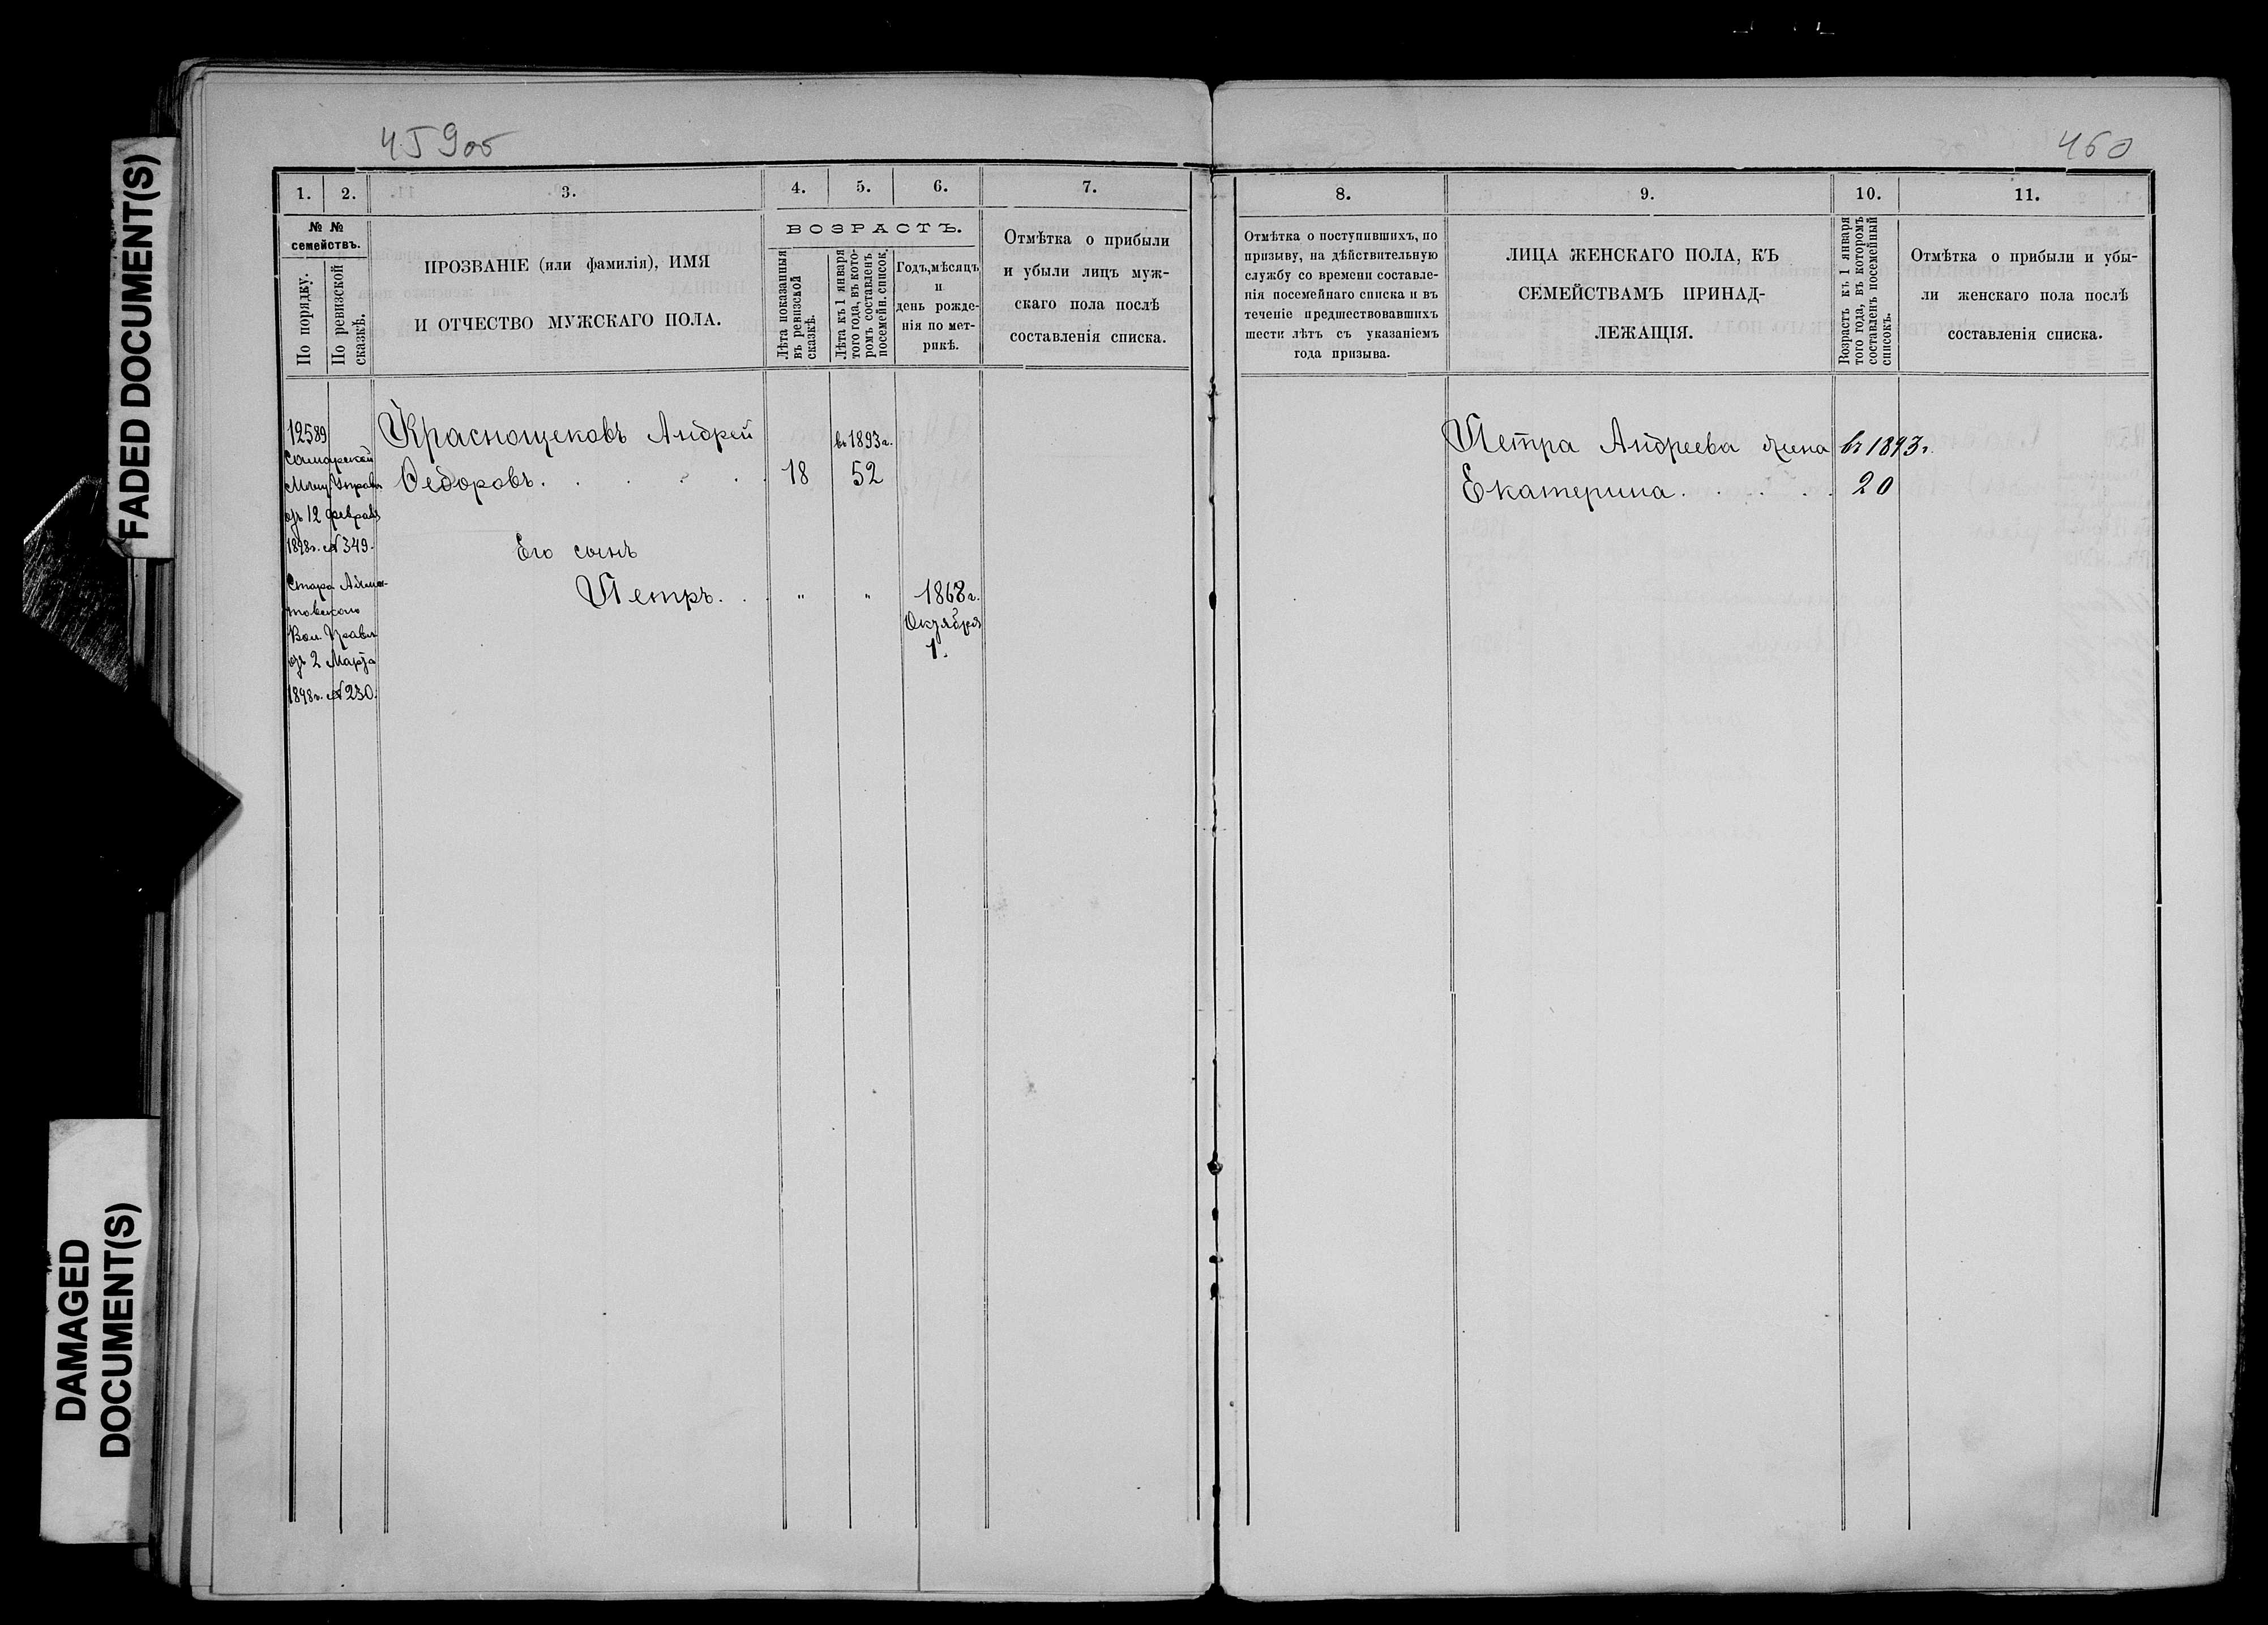 FADED DOCUMENT(S)
DAMAGED
DOCUMENT(S)
459об
1.
2.
3.
4.
5.
6.
7.
№ №
семействъ.
По порядку.
По ревизской
сказкѣ.
ПРОЗВАНІЕ (или фамилія), ИМЯ
И ОТЧЕСТВО МУЖСКАГО ПОЛА.
ВОЗРАСТЪ.
Лѣта показанныя
въ ревизской
сказкѣ.
Лѣта къ 1 января
того года, въ кото-
ромъ составленъ
посемейн. список.
Годъ, мѣсяцъ
и
день рожде-
нія по мет-
рикѣ.
Отмѣтка о прибыли
и убыли лицъ муж-
скаго пола послѣ
составленія списка.
12589
Самарской
Мѣщ. Управы
отъ 12 Февраля
1898г. № 349.
Вол. Правл
отъ 2 Марта
1898г. № 230.
Краснощековъ Андрей
Ѳедоровъ.
18
въ 1893г.
52
Его сынъ
Петръ.
"
"
1868г.
Октября
1.
460
8.
9.
10.
11.
Отмѣтка о поступившихъ, по
призыву, на дѣйствительную
службу со времени составле-
нія посемейнаго списка и въ
теченіе предшествовавшихъ
шести лѣтъ съ указаніемъ
года призыва.
ЛИЦА ЖЕНСКАГО ПОЛА, КЪ
СЕМЕЙСТВАМЪ ПРИНАД-
ЛЕЖАЩІЯ.
Возрастъ къ 1 января
того года, въ которомъ
составленъ посемейный
списокъ.
Отмѣтка о прибыли и убы-
ли женскаго пола послѣ
составленія списка.
Петра Андреева жена
въ 1893г.
Екатерина.
20